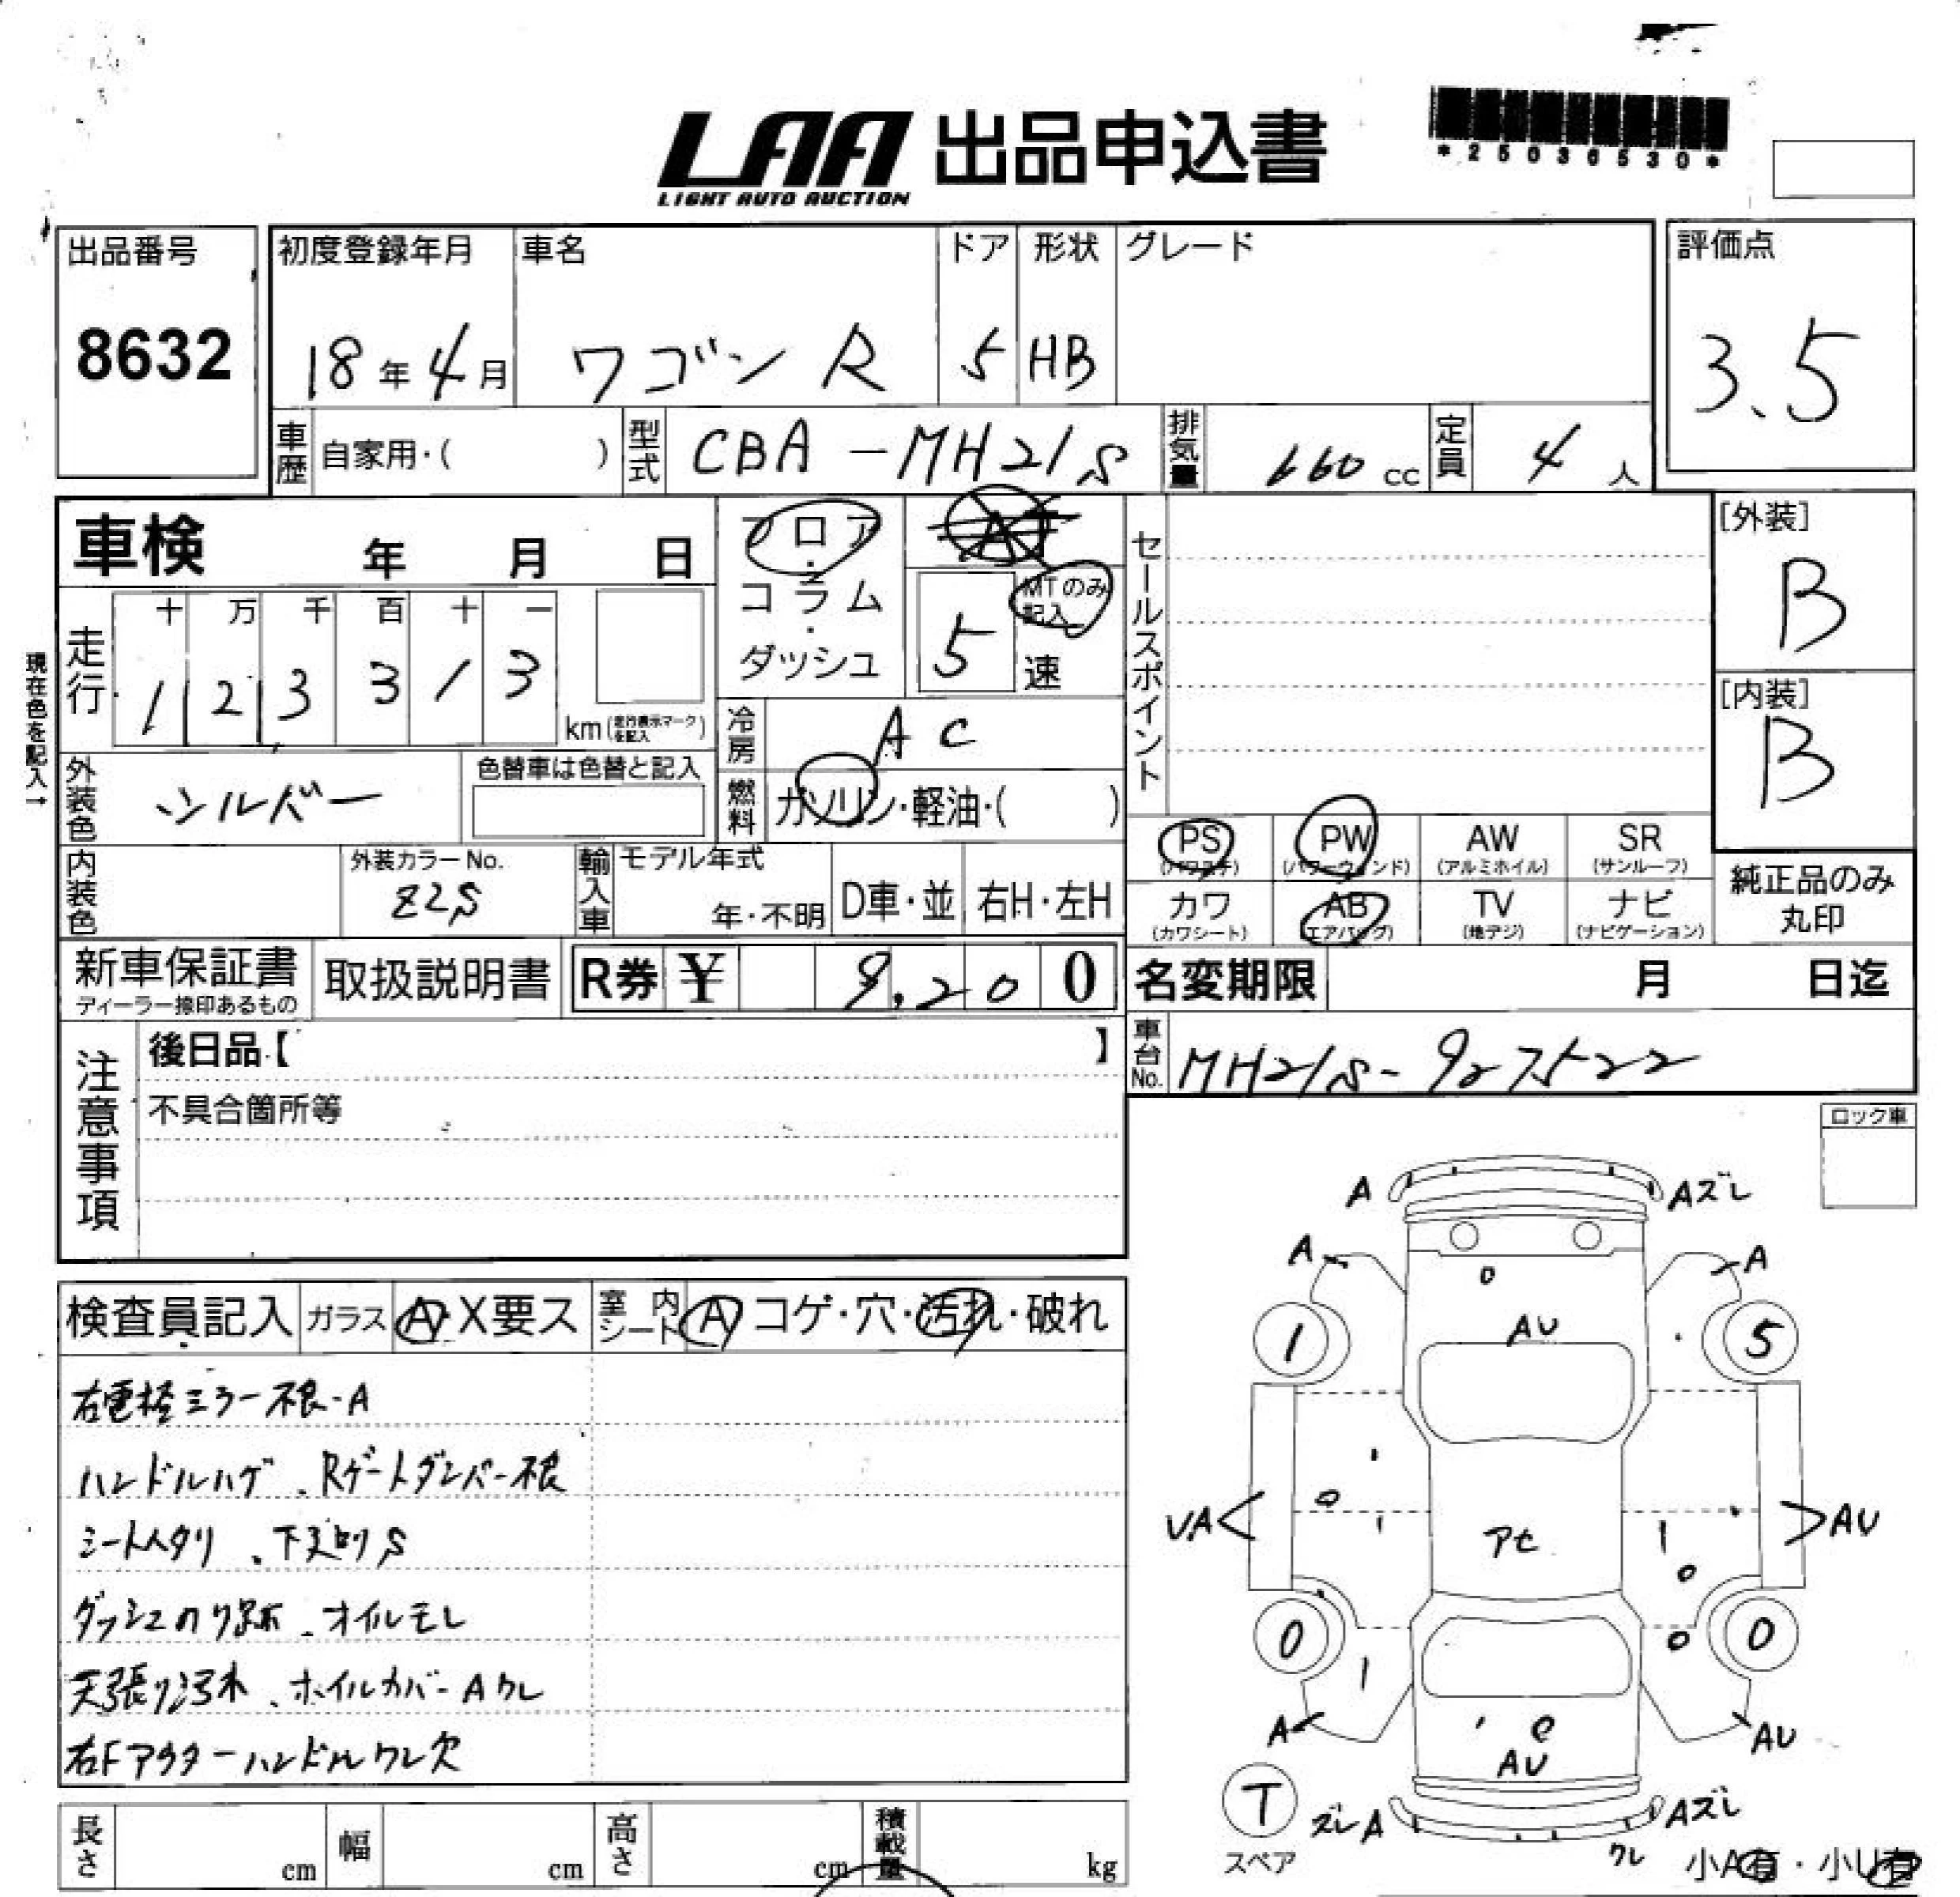 LAA 出品申込書
LIGHT AUTO AUCTION
*25036530*
出品番号
8632
初度登録年月 車名 ドア 形状 グレード
18年4月 ワゴンR 5 HB
評価点
3.5
車歴 自家用・( ) 型式 CBA-MH21S 排気量 660cc 定員 4人
車検 年 月 日
フロア・コラム・ダッシュ
AT
MTのみ記入
5速
セールスポイント
[外装]
B
[内装]
B
現在色を記入→
走行 十 万 千 百 十 一
1 2 3 3 1 3
km(走行表示マークを記入)
冷房 AC
燃料 ガソリン・軽油・( )
外装色 シルバー 色替車は色替と記入
内装色 外装カラーNo. Z2S
輸入車 モデル年式 年・不明 D車・並 右H・左H
PS (パワステ) PW (パワーウィンド) AW (アルミホイル) SR (サンルーフ)
カワ (カワシート) AB (エアバッグ) TV (地デジ) ナビ (ナビゲーション)
純正品のみ丸印
新車保証書 ディーラー捺印あるもの 取扱説明書 R券 ¥ 9,200
名変期限 月 日迄
車台No. MH21S-927522
注意事項
後日品【 】
不具合箇所等
ロック車
検査員記入 ガラス A・X要ス 室内シート A コゲ・穴・汚れ・破れ
右電格ミラー不良-A
ハンドルハゲ、Rゲートダンパー不良
シートヘタリ、下廻りS
ダッシュのり跡、オイルモレ
天張り汚れ、ホイルカバーAワレ
右Fアウターハンドルワレ欠
A Aズレ
A A
1 AU 5
VA アセ AU
0 0
A AU AU
T ズレA Aズレ
スペア ワレ 小A有・小U有
長さ cm 幅 cm 高さ cm 積載量 kg